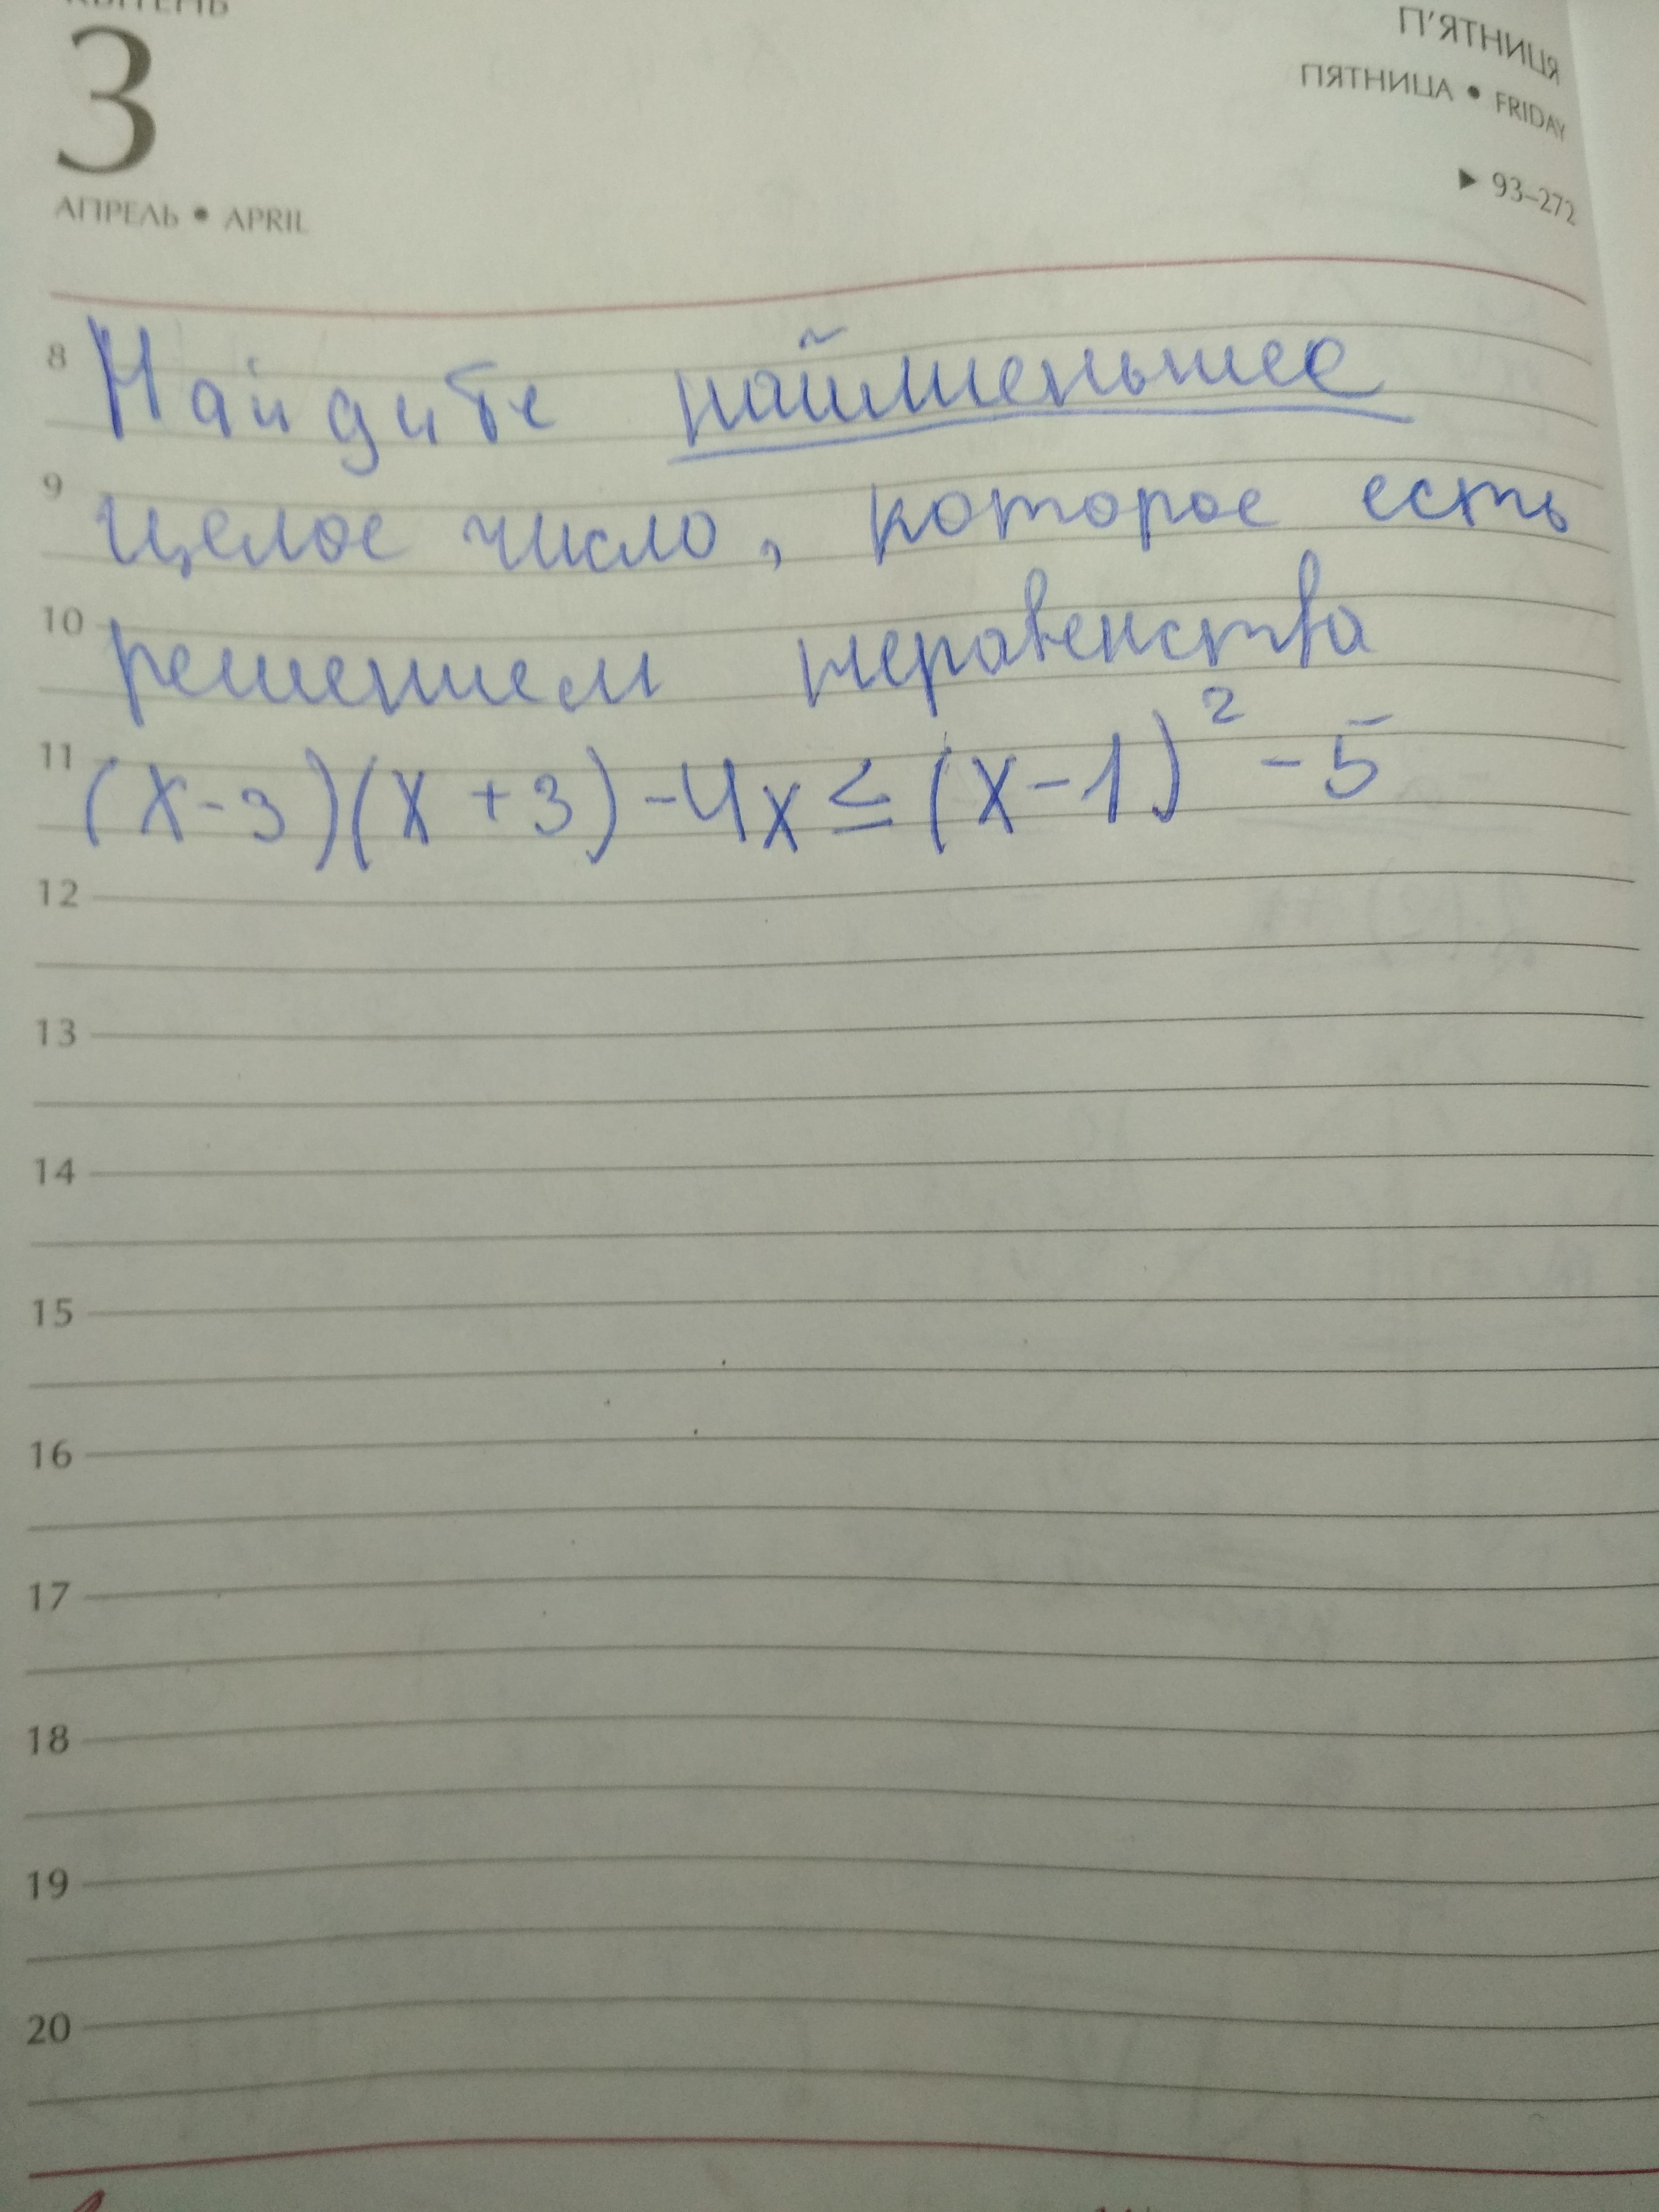 3
АПРЕЛЬ • APRIL
П'ЯТНИЦЯ
ПЯТНИЦА • FRIDAY
▶ 93–272
8 Найдите найменьшее
9 целое число, которое есть
10 решением неравенства
11 (x-3)(x+3)-4x≤(x-1)²-5
12
13
14
15
16
17
18
19
20